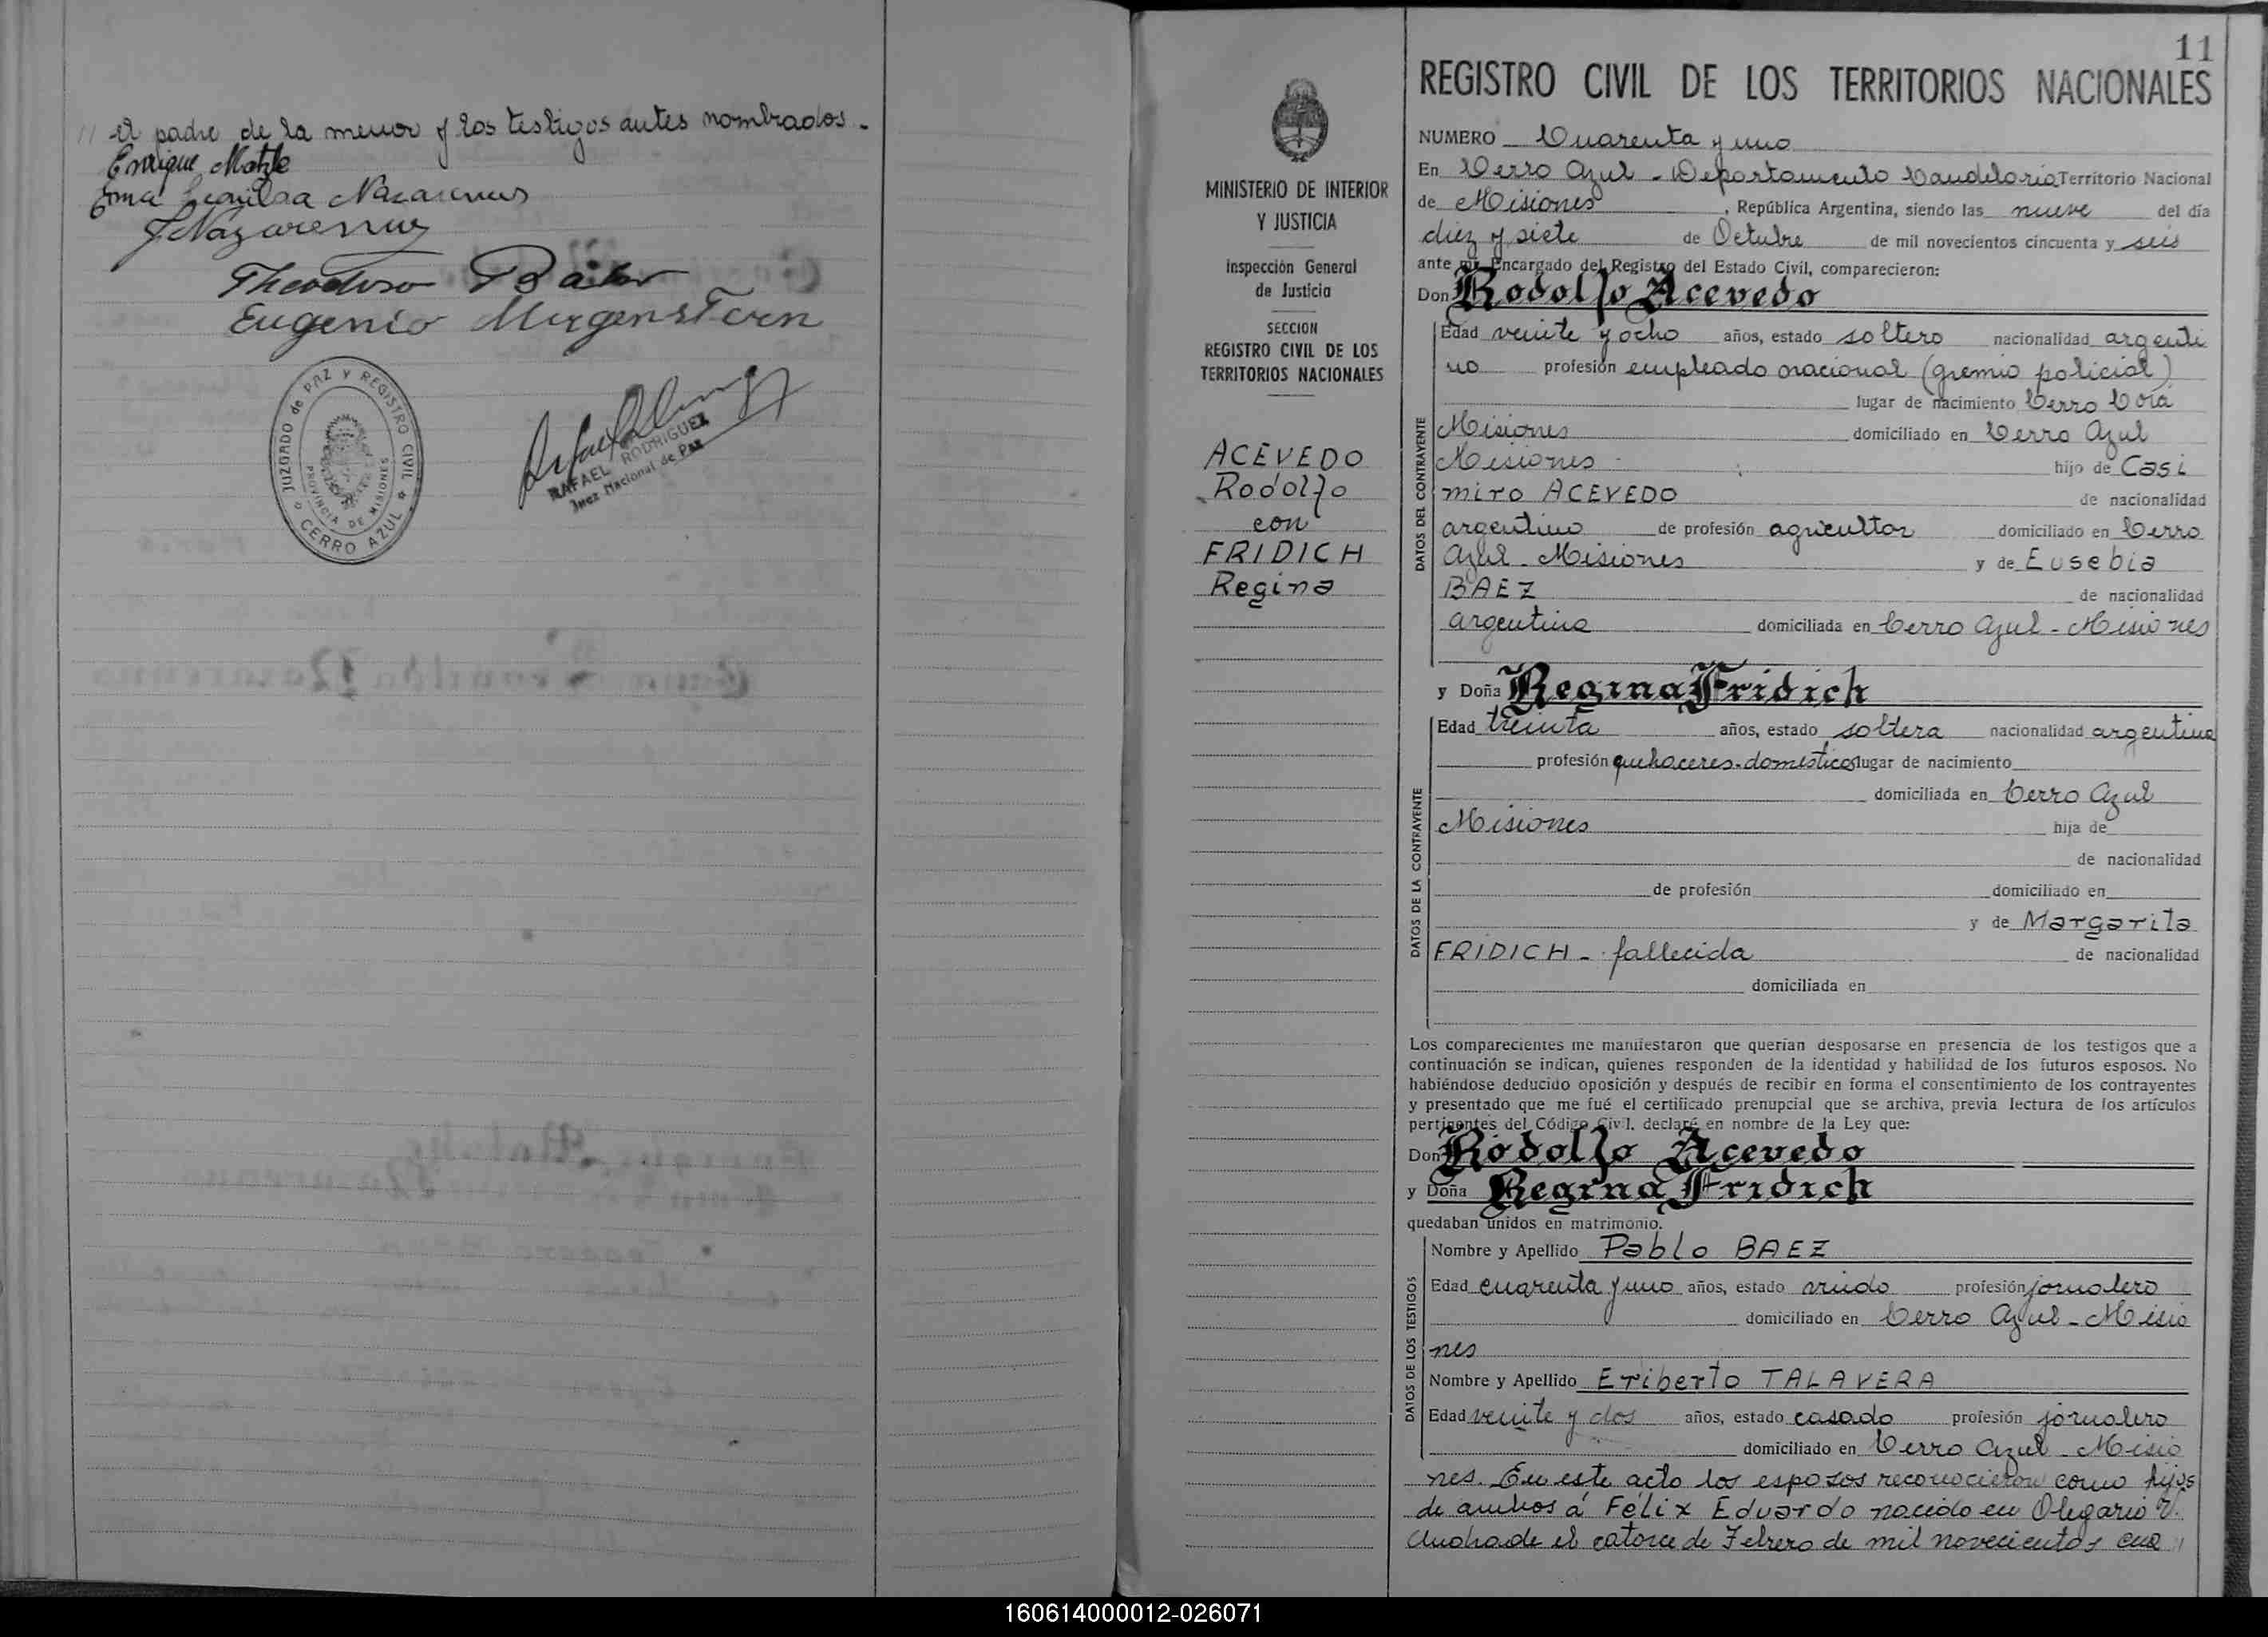 // el padre de la menor y los testigos antes nombrados.-
Enrique Matzle
Ema Nazarenus
J Nazarenus
Theodoro
Eugenio Murgenstern
JUZGADO de PAZ Y REGISTRO CIVIL
PROVINCIA DE MISIONES
CERRO AZUL
RAFAEL RODRIGUEZ
Juez Nacional de Paz
11
MINISTERIO DE INTERIOR
Y JUSTICIA
Inspección General
de Justicia
SECCION
REGISTRO CIVIL DE LOS
TERRITORIOS NACIONALES
ACEVEDO
Rodolfo
con
FRIDICH
Regina
REGISTRO CIVIL DE LOS TERRITORIOS NACIONALES
NUMERO Cuarenta y uno
En Cerro Azul - Departamento Candelaria Territorio Nacional
de Misiones, República Argentina, siendo las nueve del día
diez y siete de Octubre de mil novecientos cincuenta y seis
ante mí, Encargado del Registro del Estado Civil, comparecieron:
Don Rodolfo Acevedo
DATOS DEL CONTRAYENTE
Edad veinte y ocho años, estado soltero nacionalidad argenti
no profesión empleado nacional (gremio policial)
lugar de nacimiento Cerro Corá
Misiones domiciliado en Cerro Azul
Misiones - hijo de Casi
miro ACEVEDO de nacionalidad
argentino de profesión agricultor domiciliado en Cerro
Azul - Misiones y de Eusebia
BAEZ de nacionalidad
argentina domiciliada en Cerro Azul - Misiones
y Doña Regina Fridich
DATOS DE LA CONTRAYENTE
Edad treinta años, estado soltera nacionalidad argentina
profesión quehaceres-domésticos lugar de nacimiento
domiciliada en Cerro Azul
Misiones hija de
de nacionalidad
de profesión domiciliado en
y de Margarita
FRIDICH - fallecida de nacionalidad
domiciliada en
Los comparecientes me manifestaron que querían desposarse en presencia de los testigos que a
continuación se indican, quienes responden de la identidad y habilidad de los futuros esposos. No
habiéndose deducido oposición y después de recibir en forma el consentimiento de los contrayentes
y presentado que me fué el certificado prenupcial que se archiva, previa lectura de los artículos
pertinentes del Código Civil. declaré en nombre de la Ley que:
Don Rodolfo Acevedo
y Doña Regina Fridich
quedaban unidos en matrimonio.
DATOS DE LOS TESTIGOS
Nombre y Apellido Pablo BAEZ
Edad cuarenta y uno años, estado viudo profesión jornalero
domiciliado en Cerro Azul - Misio
nes
Nombre y Apellido Eriberto TALAVERA
Edad veinte y dos años, estado casado profesión jornalero
domiciliado en Cerro Azul - Misio
nes. En este acto los esposos reconocieron como hijos
de ambos á Félix Eduardo nacido en Olegario V.
Andrade el catorce de Febrero de mil novecientos cua //
160614000012-026071